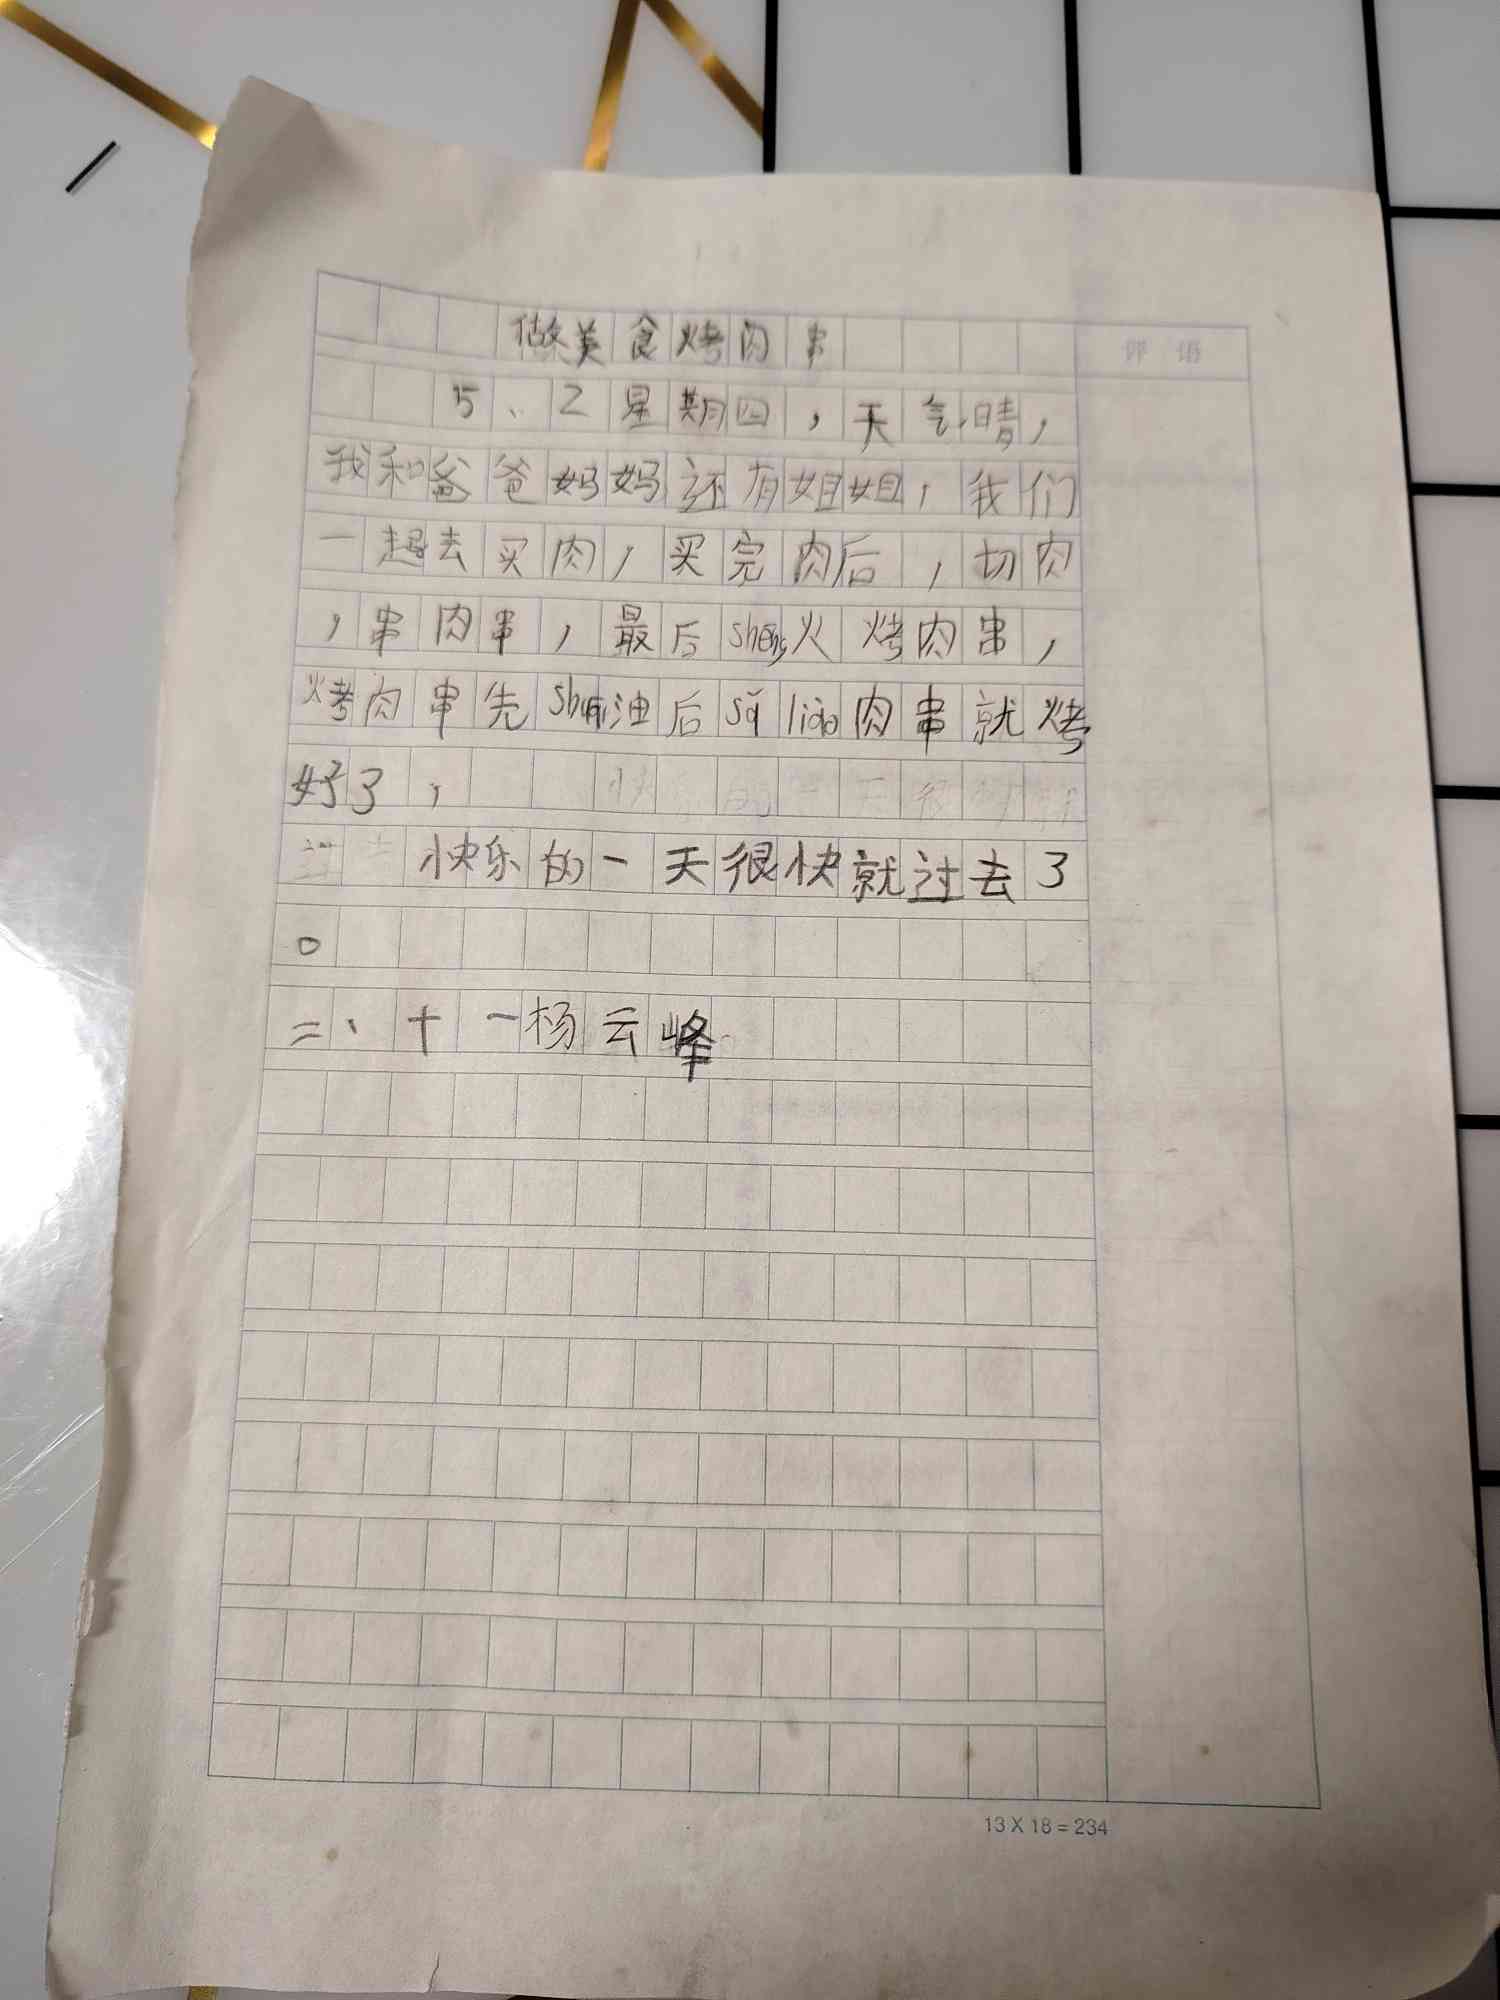 做美食烤肉串
评语
5、2星期四，天气晴，
我和爸爸妈妈还有姐姐，我们
一起去买肉，买完肉后，切肉
，串肉串，最后shēng火烤肉串，
烤肉串先shuā油后sā liào肉串就烤
好了，
快乐的一天很快就过去了
。
二、十一杨云峰
13 X 18 = 234